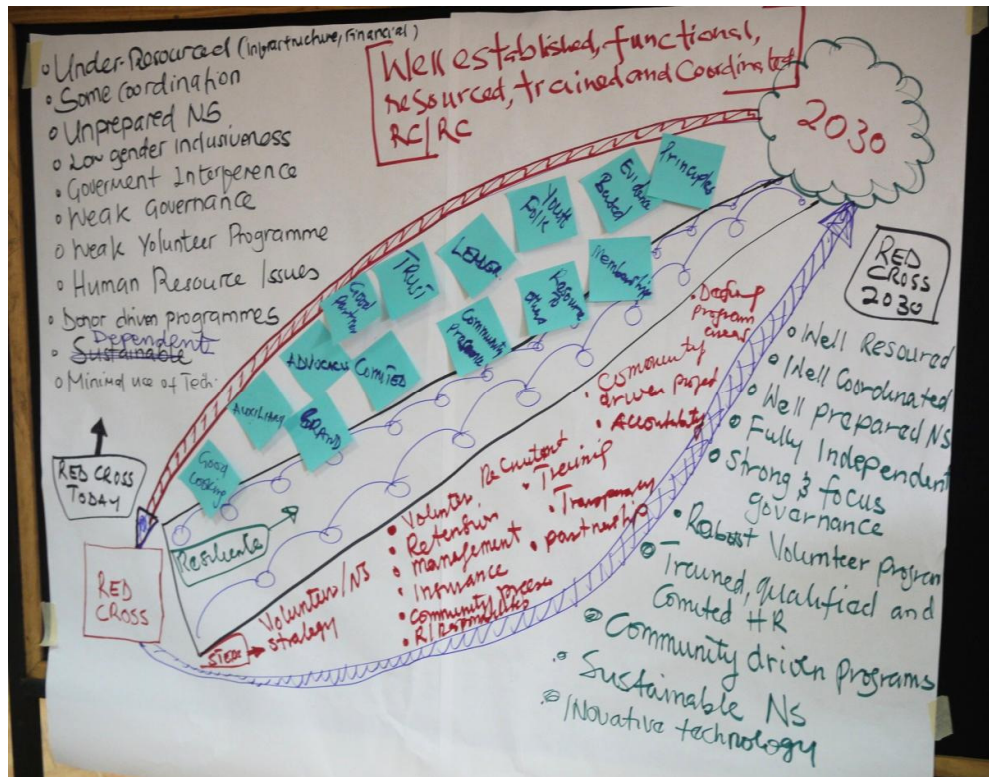 Under-Resourced (Infrastructure, Financial)
Some Coordination
Unprepared NS
Low gender inclusiveness
Goverment Interference
Weak Governance
Weak Volunteer Programme
Human Resource Issues
Donor driven programmes
Dependent
Sustainable
Minimal use of Tech.
RED CROSS
TODAY
RED
CROSS
Well established, functional,
resourced, trained and Coordinated
RC/RC
2030
RED
CROSS
2030
Principles
Evidence
Based
Youth
LEADER
TRUST
Good
ADVOCACY
AUXILIARY
Good
Looking
BRAND
COMITED
Community
Resource
Membership
Resilience
STEPS
Volunteers/NS
strategy
Volunteer Recruitment
Retension
management
Insurance
Community
Training
Transparency
partnership
Community
driven project
Accountability
Defining
program
areas
Well Resoured
Well Coordinated
Well prepared NS
Fully Independent
Strong & focus
governance
Robost Volunteer program
Trained, qualified and
Comited HR
Community driven programs
Sustainable NS
INovative technology